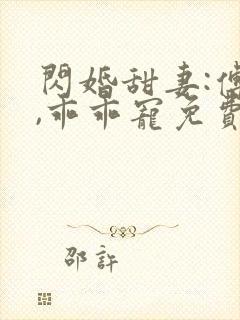 閃婚甜妻:傅
,乖乖寵免費
邵許